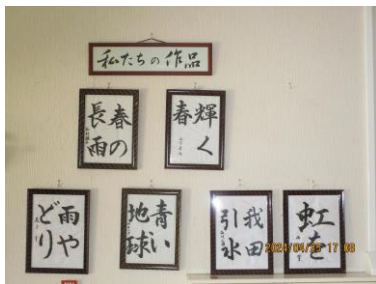 私たちの作品
春の
長雨
輝く
春
雨や
どり
青い
地球
我田
引水
虹を
2023/04/25 17:08